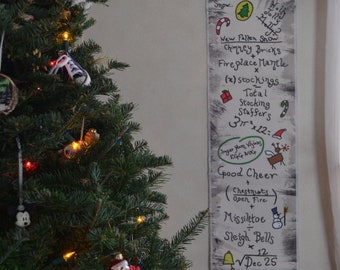 Snow
New Fallen Snow
Chimney Bricks
+
Fireplace Mantle
x
(x) stockings
Total
Stocking
Stuffers
3π²x12=
Sugar Plum Visions
Eggs Nog
Good Cheer
+
(Chestnuts
Open Fire)
+
Missiltoe
÷
Sleigh Bells
x
12
√Dec 25